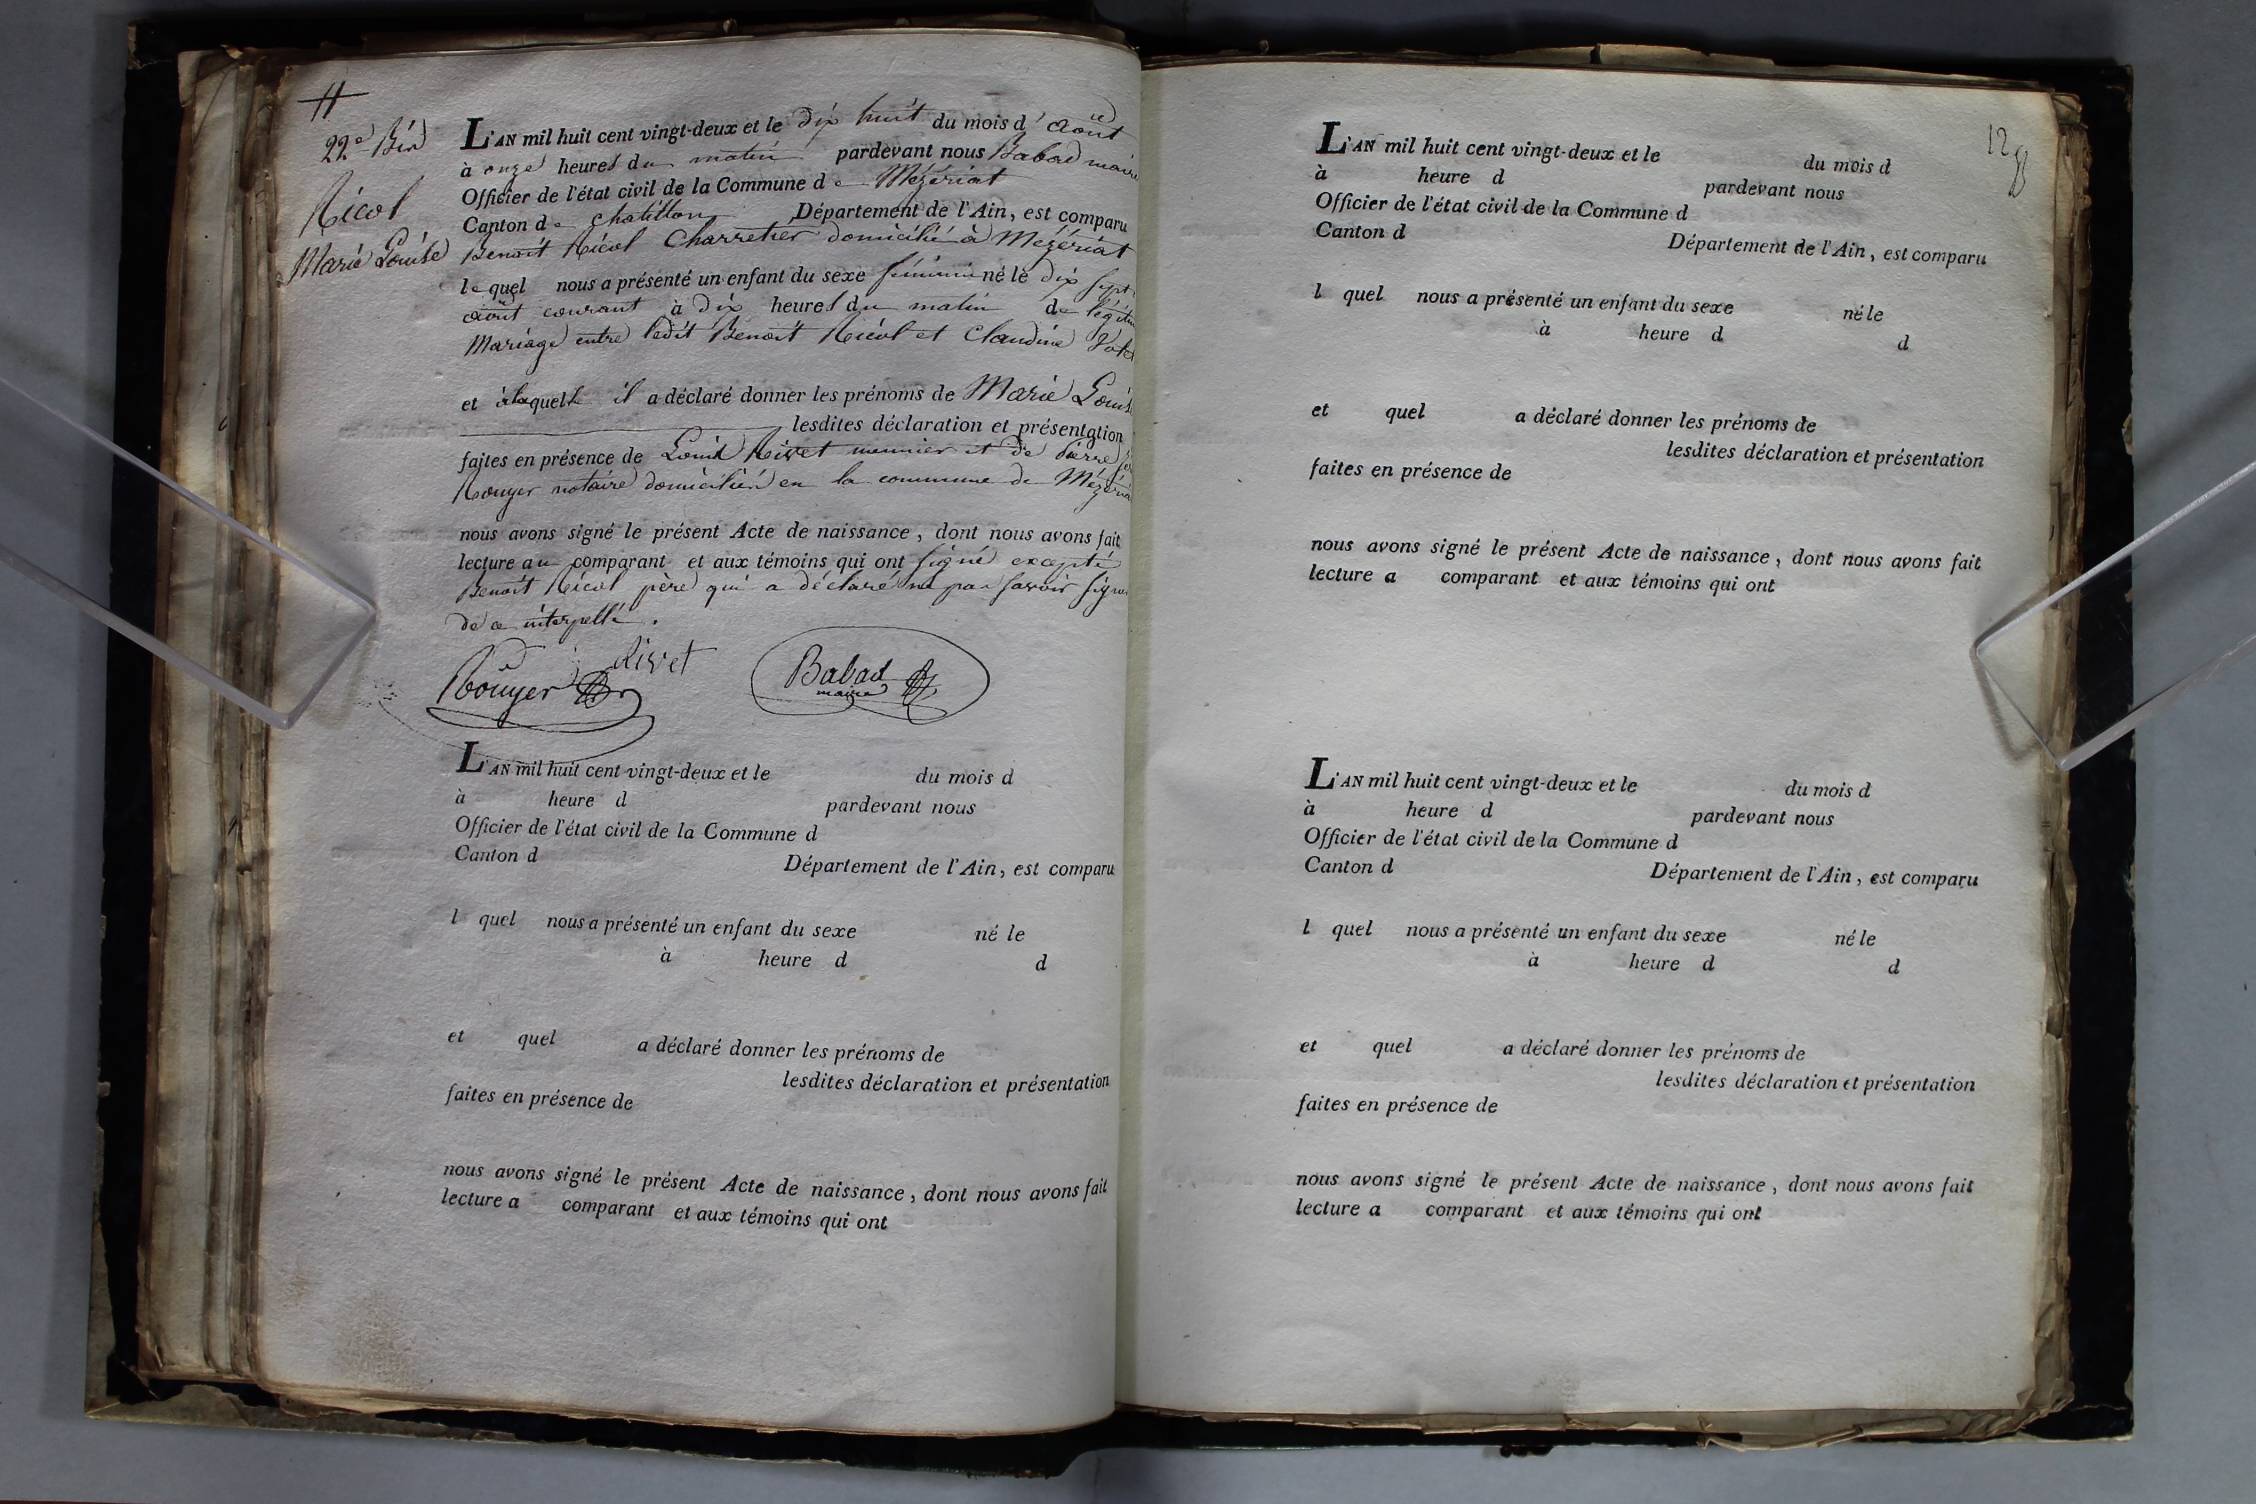 22e Bis
Nicol
Marie Louise
L'AN mil huit cent vingt-deux et le dix huit du mois d'août
à onze heures du matin pardevant nous Babad maire
Officier de l'état civil de la Commune de Mézériat
Canton de chatillon Département de l'Ain, est comparu
Benoit Nicol Charretier domicilié à Mézériat
lequel nous a présenté un enfant du sexe féminin né le dix sept
août courant à dix heures du matin de
Mariage entre ledit Benoit Nicol et Claudine
et à laquelle il a déclaré donner les prénoms de Marie Louise
lesdites déclaration et présentation
faites en présence de Louis Rivet meunier et de Pierre
Rouyer notaire domiciliés en la commune de
nous avons signé le présent Acte de naissance, dont nous avons fait
lecture au comparant et aux témoins qui ont signé excepté
Benoit Nicol père qui a déclaré ne pas savoir signer
de ce interpellé.
Rouyer Rivet Babad
maire
L'AN mil huit cent vingt-deux et le du mois d
à heure d pardevant nous
Officier de l'état civil de la Commune d
Canton d Département de l'Ain, est comparu
l quel nous a présenté un enfant du sexe né le
à heure d d
et quel a déclaré donner les prénoms de
lesdites déclaration et présentation
faites en présence de
nous avons signé le présent Acte de naissance, dont nous avons fait
lecture a comparant et aux témoins qui ont
12
L'AN mil huit cent vingt-deux et le du mois d
à heure d pardevant nous
Officier de l'état civil de la Commune d
Canton d Département de l'Ain, est comparu
l quel nous a présenté un enfant du sexe né le
à heure d d
et quel a déclaré donner les prénoms de
lesdites déclaration et présentation
faites en présence de
nous avons signé le présent Acte de naissance, dont nous avons fait
lecture a comparant et aux témoins qui ont
L'AN mil huit cent vingt-deux et le du mois d
à heure d pardevant nous
Officier de l'état civil de la Commune d
Canton d Département de l'Ain, est comparu
l quel nous a présenté un enfant du sexe né le
à heure d d
et quel a déclaré donner les prénoms de
lesdites déclaration et présentation
faites en présence de
nous avons signé le présent Acte de naissance, dont nous avons fait
lecture a comparant et aux témoins qui ont